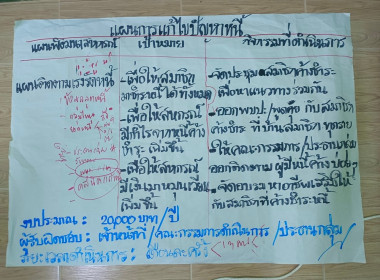 แผนการแก้ไขปัญหาหนี้
แผนพัฒนาสหกรณ์
เป้าหมาย
กิจกรรมที่ดำเนินการ
แผนติดตามเร่งรัดหนี้
-เพื่อให้สมาชิก
ชำระหนี้ได้ทั้งหมด
-เพื่อให้สหกรณ์
มีกำไรจากหนี้ค้าง
ชำระ เพิ่มขึ้น
-เพื่อให้สหกรณ์
มีเงินมาหมุนเวียน
เพิ่มขึ้น
-จัดประชุมสมาชิกค้างชำระ
เพื่อหาแนวทางร่วมกัน
-ออกพบปะ/พูดคุย กับสมาชิก
ค้างชำระ ที่บ้านสมาชิก ทุกราย
-ให้คณะกรรมการ/ประธานกลุ่ม
ออกติดตาม ผู้มีหนี้ค้าง บ่อยๆ
-จัดอบรม หาอาชีพเสริมให้
กับสมาชิกที่ค้างชำระหนี้
งบประมาณ : 20,000 บาท/ปี
ผู้รับผิดชอบ : เจ้าหน้าที่/คณะกรรมการดำเนินการ/ประธานกลุ่ม
ระยะเวลาดำเนินการ : เดือนละครั้ง